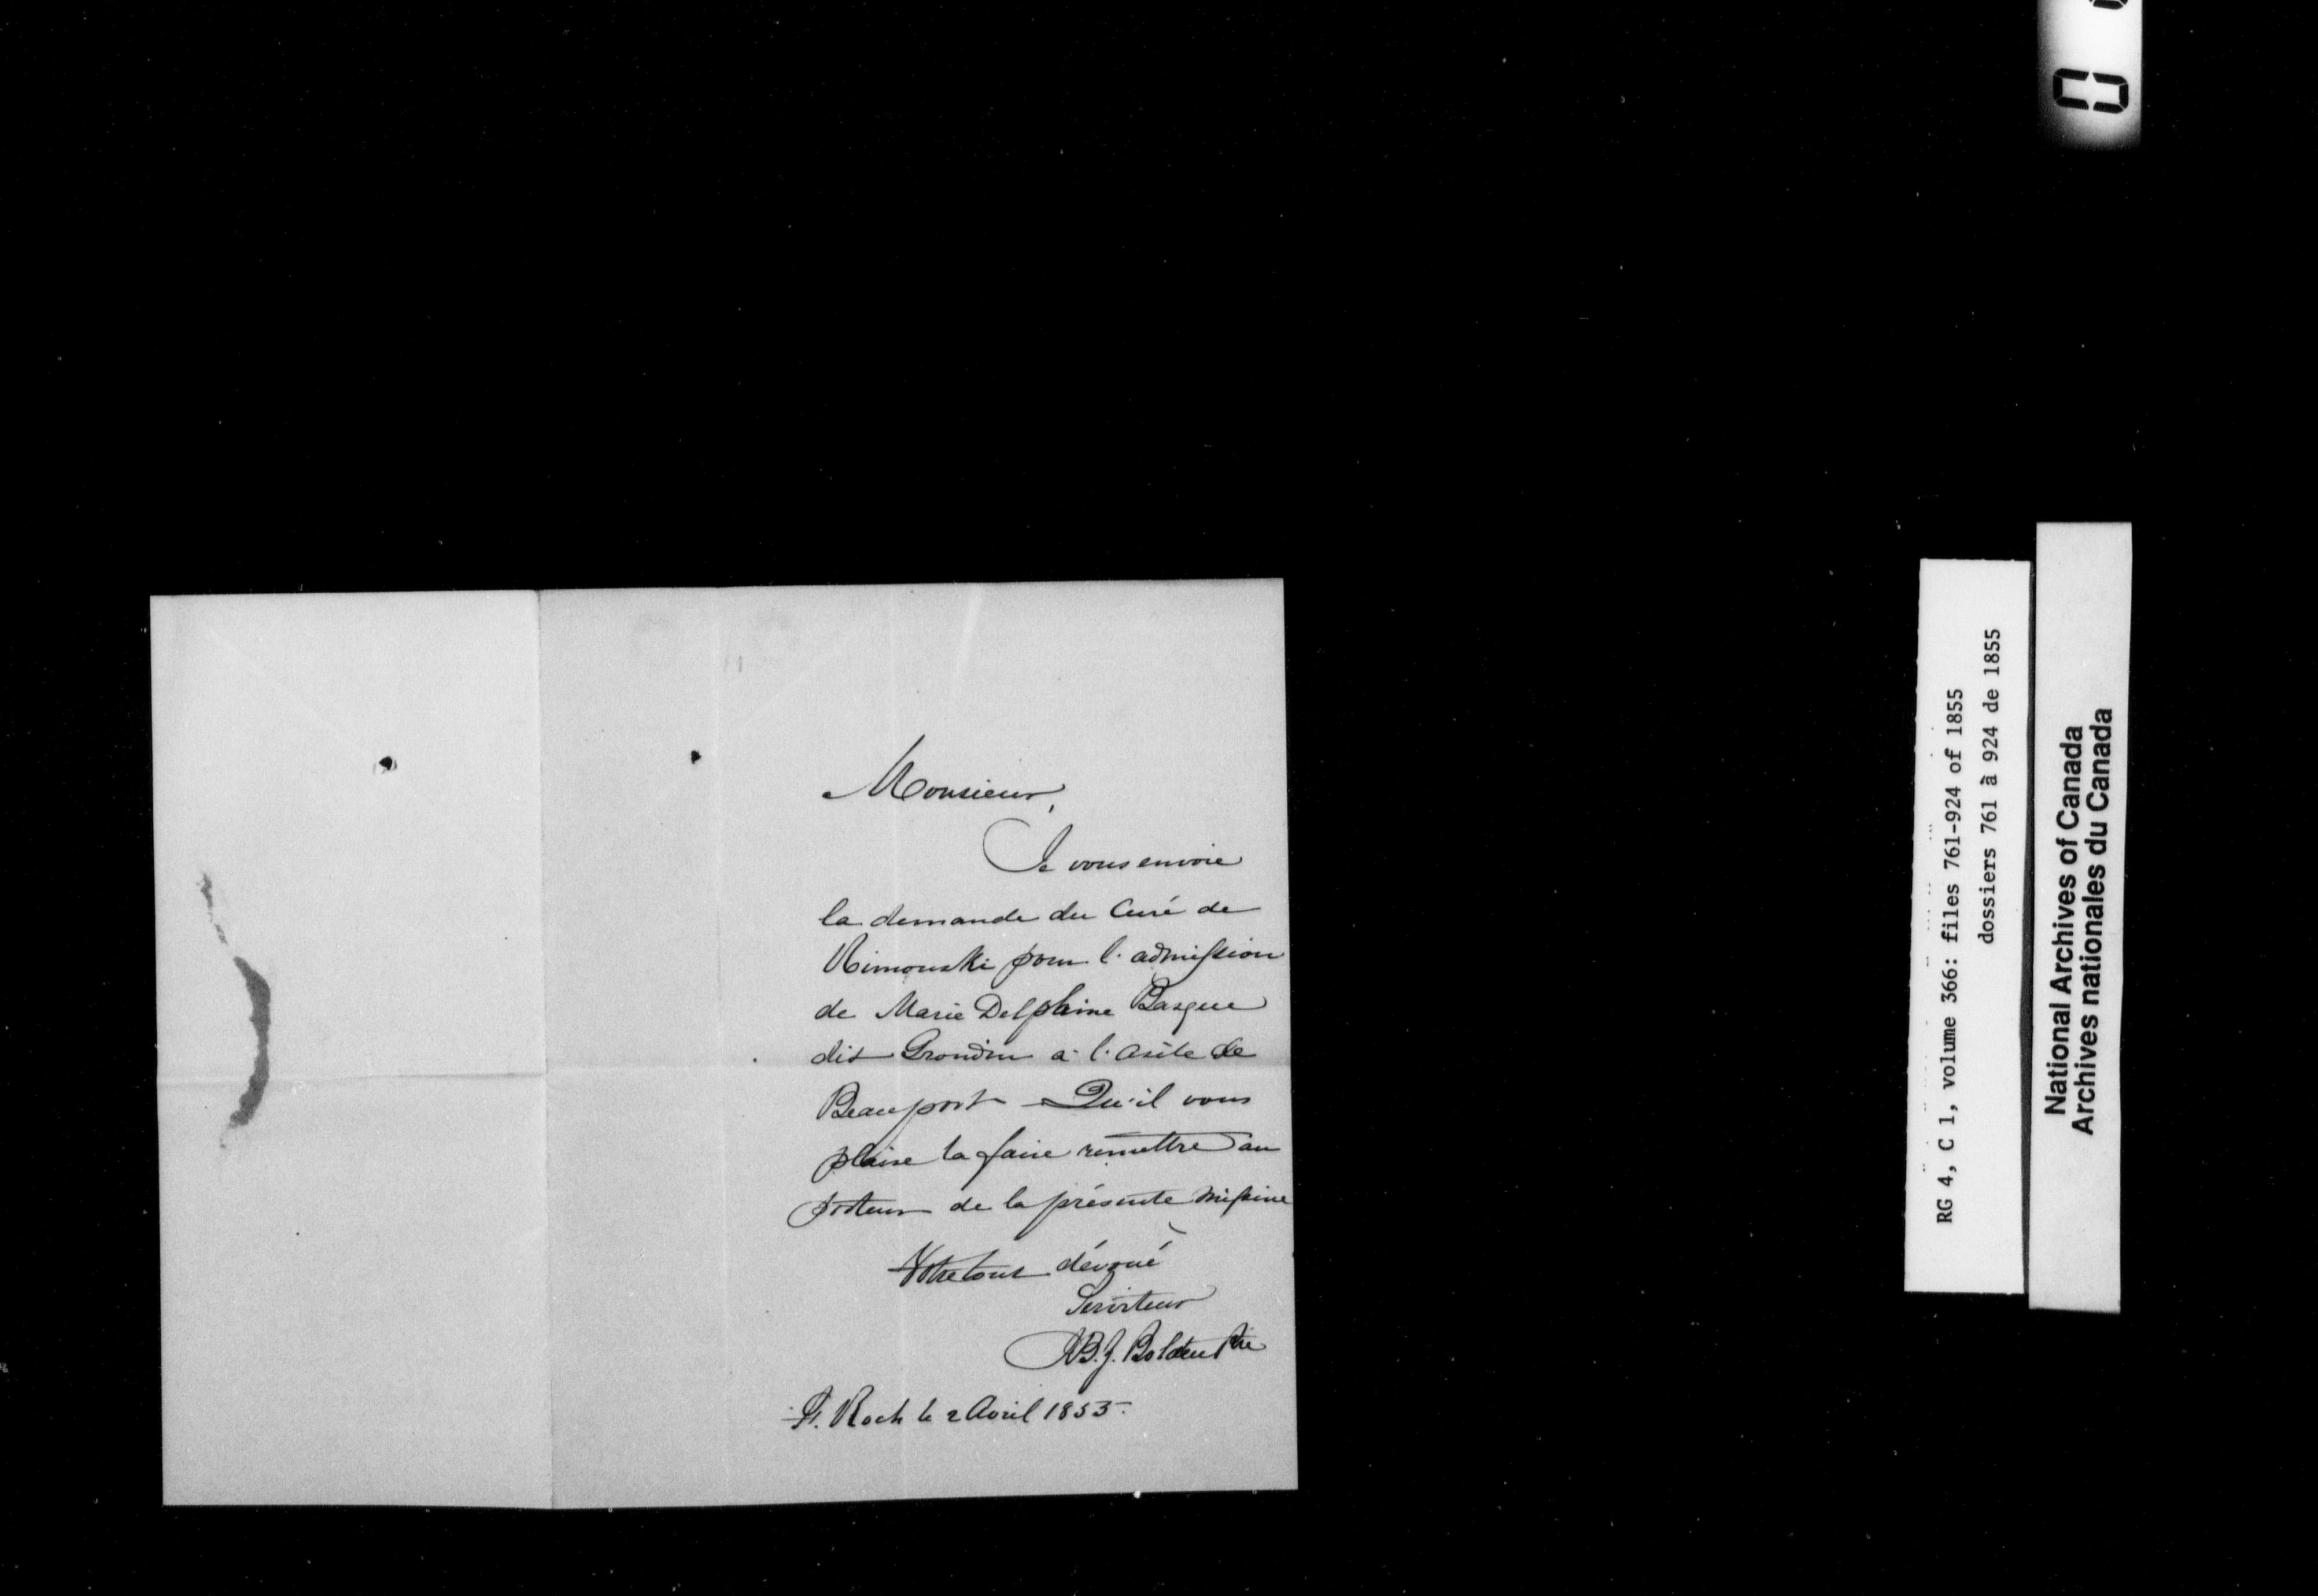 Monsieur,
Je vous envoie
la demande du Curé de
Rimouski pour l'admission
de Marie Delphine Basque
dit Grondin a l'asile de
Beauport — Qu'il vous
plaise la faire remettre au
porteur de la présente missive
Votre tout dévoué
Serviteur
Ptre
St. Roch le 2 Avril 1855.
RG 4, C 1, volume 366: files 761-924 of 1855
dossiers 761 à 924 de 1855
National Archives of Canada
Archives nationales du Canada